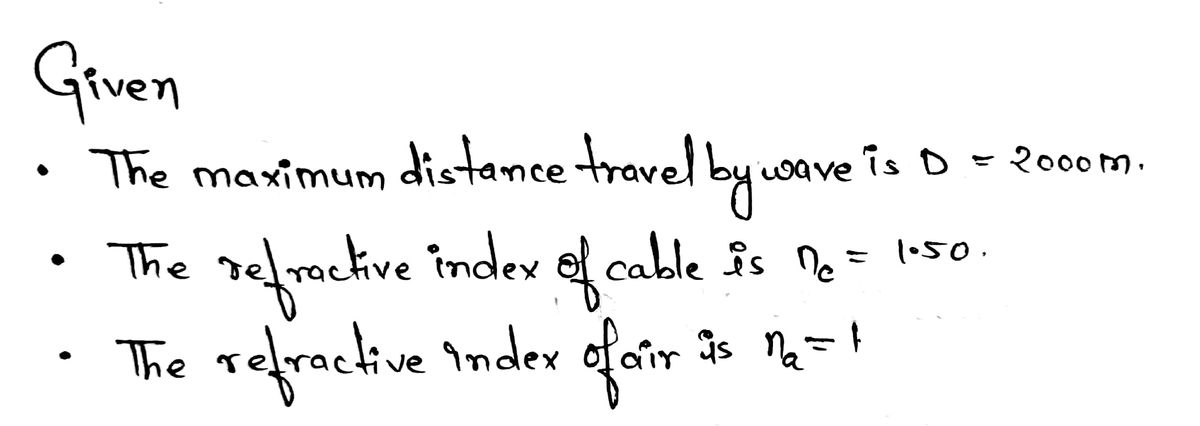 Given
• The maximum distance travel by wave is D = 2000m.
• The refractive index of cable is nc = 1.50.
• The refractive index of air is na = 1